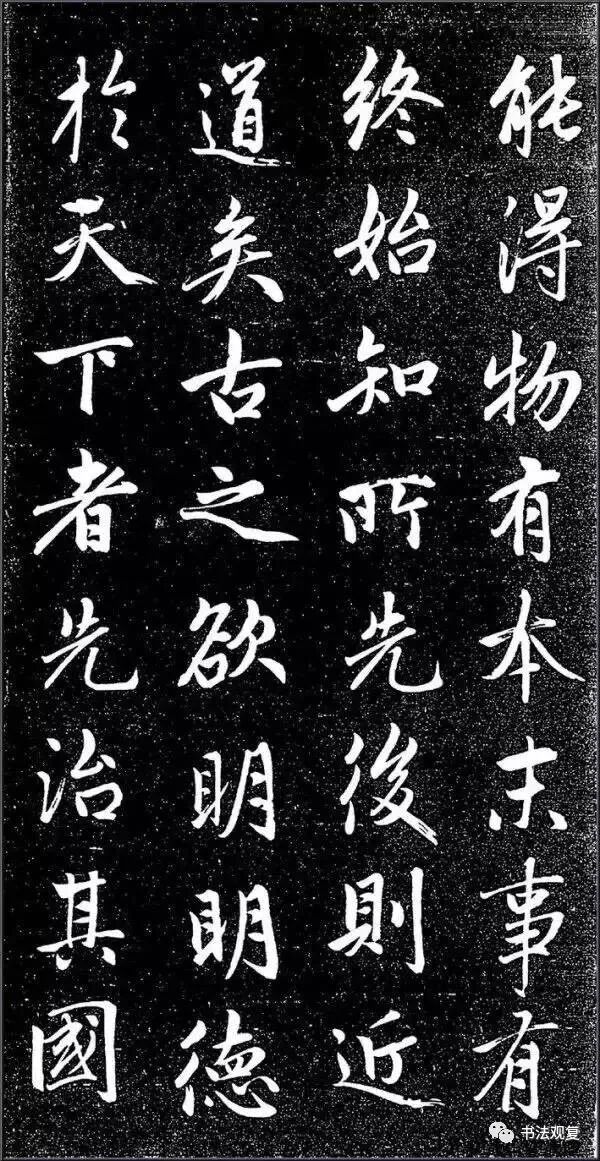 能得物有本末事有
終始知所先後則近
道矣古之欲明明德
於天下者先治其國
书法观复